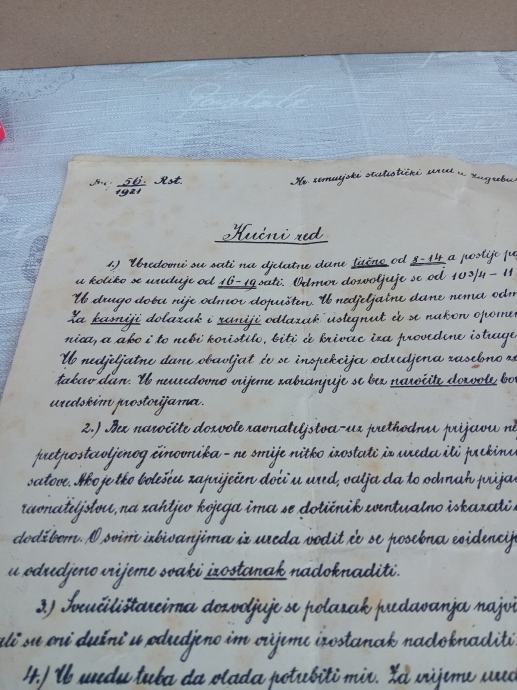 Br. 56. Rst.
1921
Kr. zemaljski statistički ured u Zagrebu
Kućni red
1.) Uredovni su sati na djelatne dane tačno od 8-14 a poslije
u koliko se ureduje od 16-19 sati. Odmor dozvoljuje se od 10 3/4 - 11
U drugo doba nije odmor dopušten. U nedjeljatne dane nema
Za kasniji dolazak i raniji odlazak ustegnut će se nakon
a ako i to nebi koristilo, biti će krivac iza provedene istrage
U nedjeljatne dane obavljat će se inspekcija odredjena zasebno za
takav dan. U neuredovno vrijeme zabranjuje se bez naročite dozvole
uredskim prostorijama.
2.) Bez naročite dozvole ravnateljstva-uz prethodnu prijavu
pretpostavljenog činovnika - ne smije nitko izostati iz ureda ili
satove. Ako je tko bolešću zapriječen doći u ured, valja da to odmah
ravnateljstvu, na zahtjev kojega ima se dotičnik eventualno iskazati
dodžbom. O svim izbivanjima iz ureda vodit će se posebna evidencija
u odredjeno vrijeme svaki izostanak nadoknaditi.
3.) Sveučilištarcima dozvoljuje se polazak predavanja
ali su oni dužni u odredjeno im vrijeme izostanak nadoknaditi.
4.) U uredu treba da vlada potrebiti mir. Za vrijeme